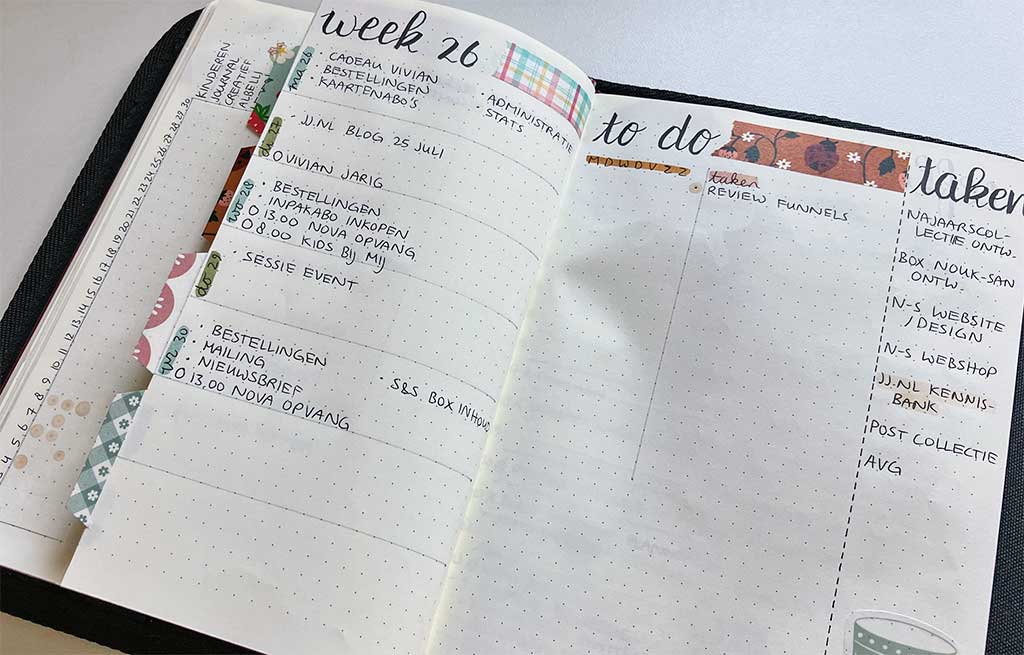 KINDEREN
JOURNAL
CREATIEF
ALBELLI
4 5 6 7 8 9 10 11 12 13 14 15 16 17 18 19 20 21 22 23 24 25 26 27 28 29 30
week 26
ma 26
· CADEAU VIVIAN
· BESTELLINGEN
· KAARTENABO'S
· ADMINISTRATIE
· STATS
di 27
· JJ.NL BLOG 25 JULI
O VIVIAN JARIG
wo 28
· BESTELLINGEN
· INPAKABO INKOPEN
O 13.00 NOVA OPVANG
O 18.00 KIDS BIJ MIJ
do 29
SESSIE EVENT
vr 30
· BESTELLINGEN
· MAILING
· NIEUWSBRIEF
O 13.00 NOVA OPVANG
· S&S BOX INHOUD
to do
M D W D V Z Z
taken
REVIEW FUNNELS
taken
NAJAARSCOL-
LECTIE ONTW.
BOX NOUK-SAN
ONTW.
N-S WEBSITE
/ DESIGN
N-S WEBSHOP
JJ.NL KENNIS-
BANK
POST COLLECTIE
AVG